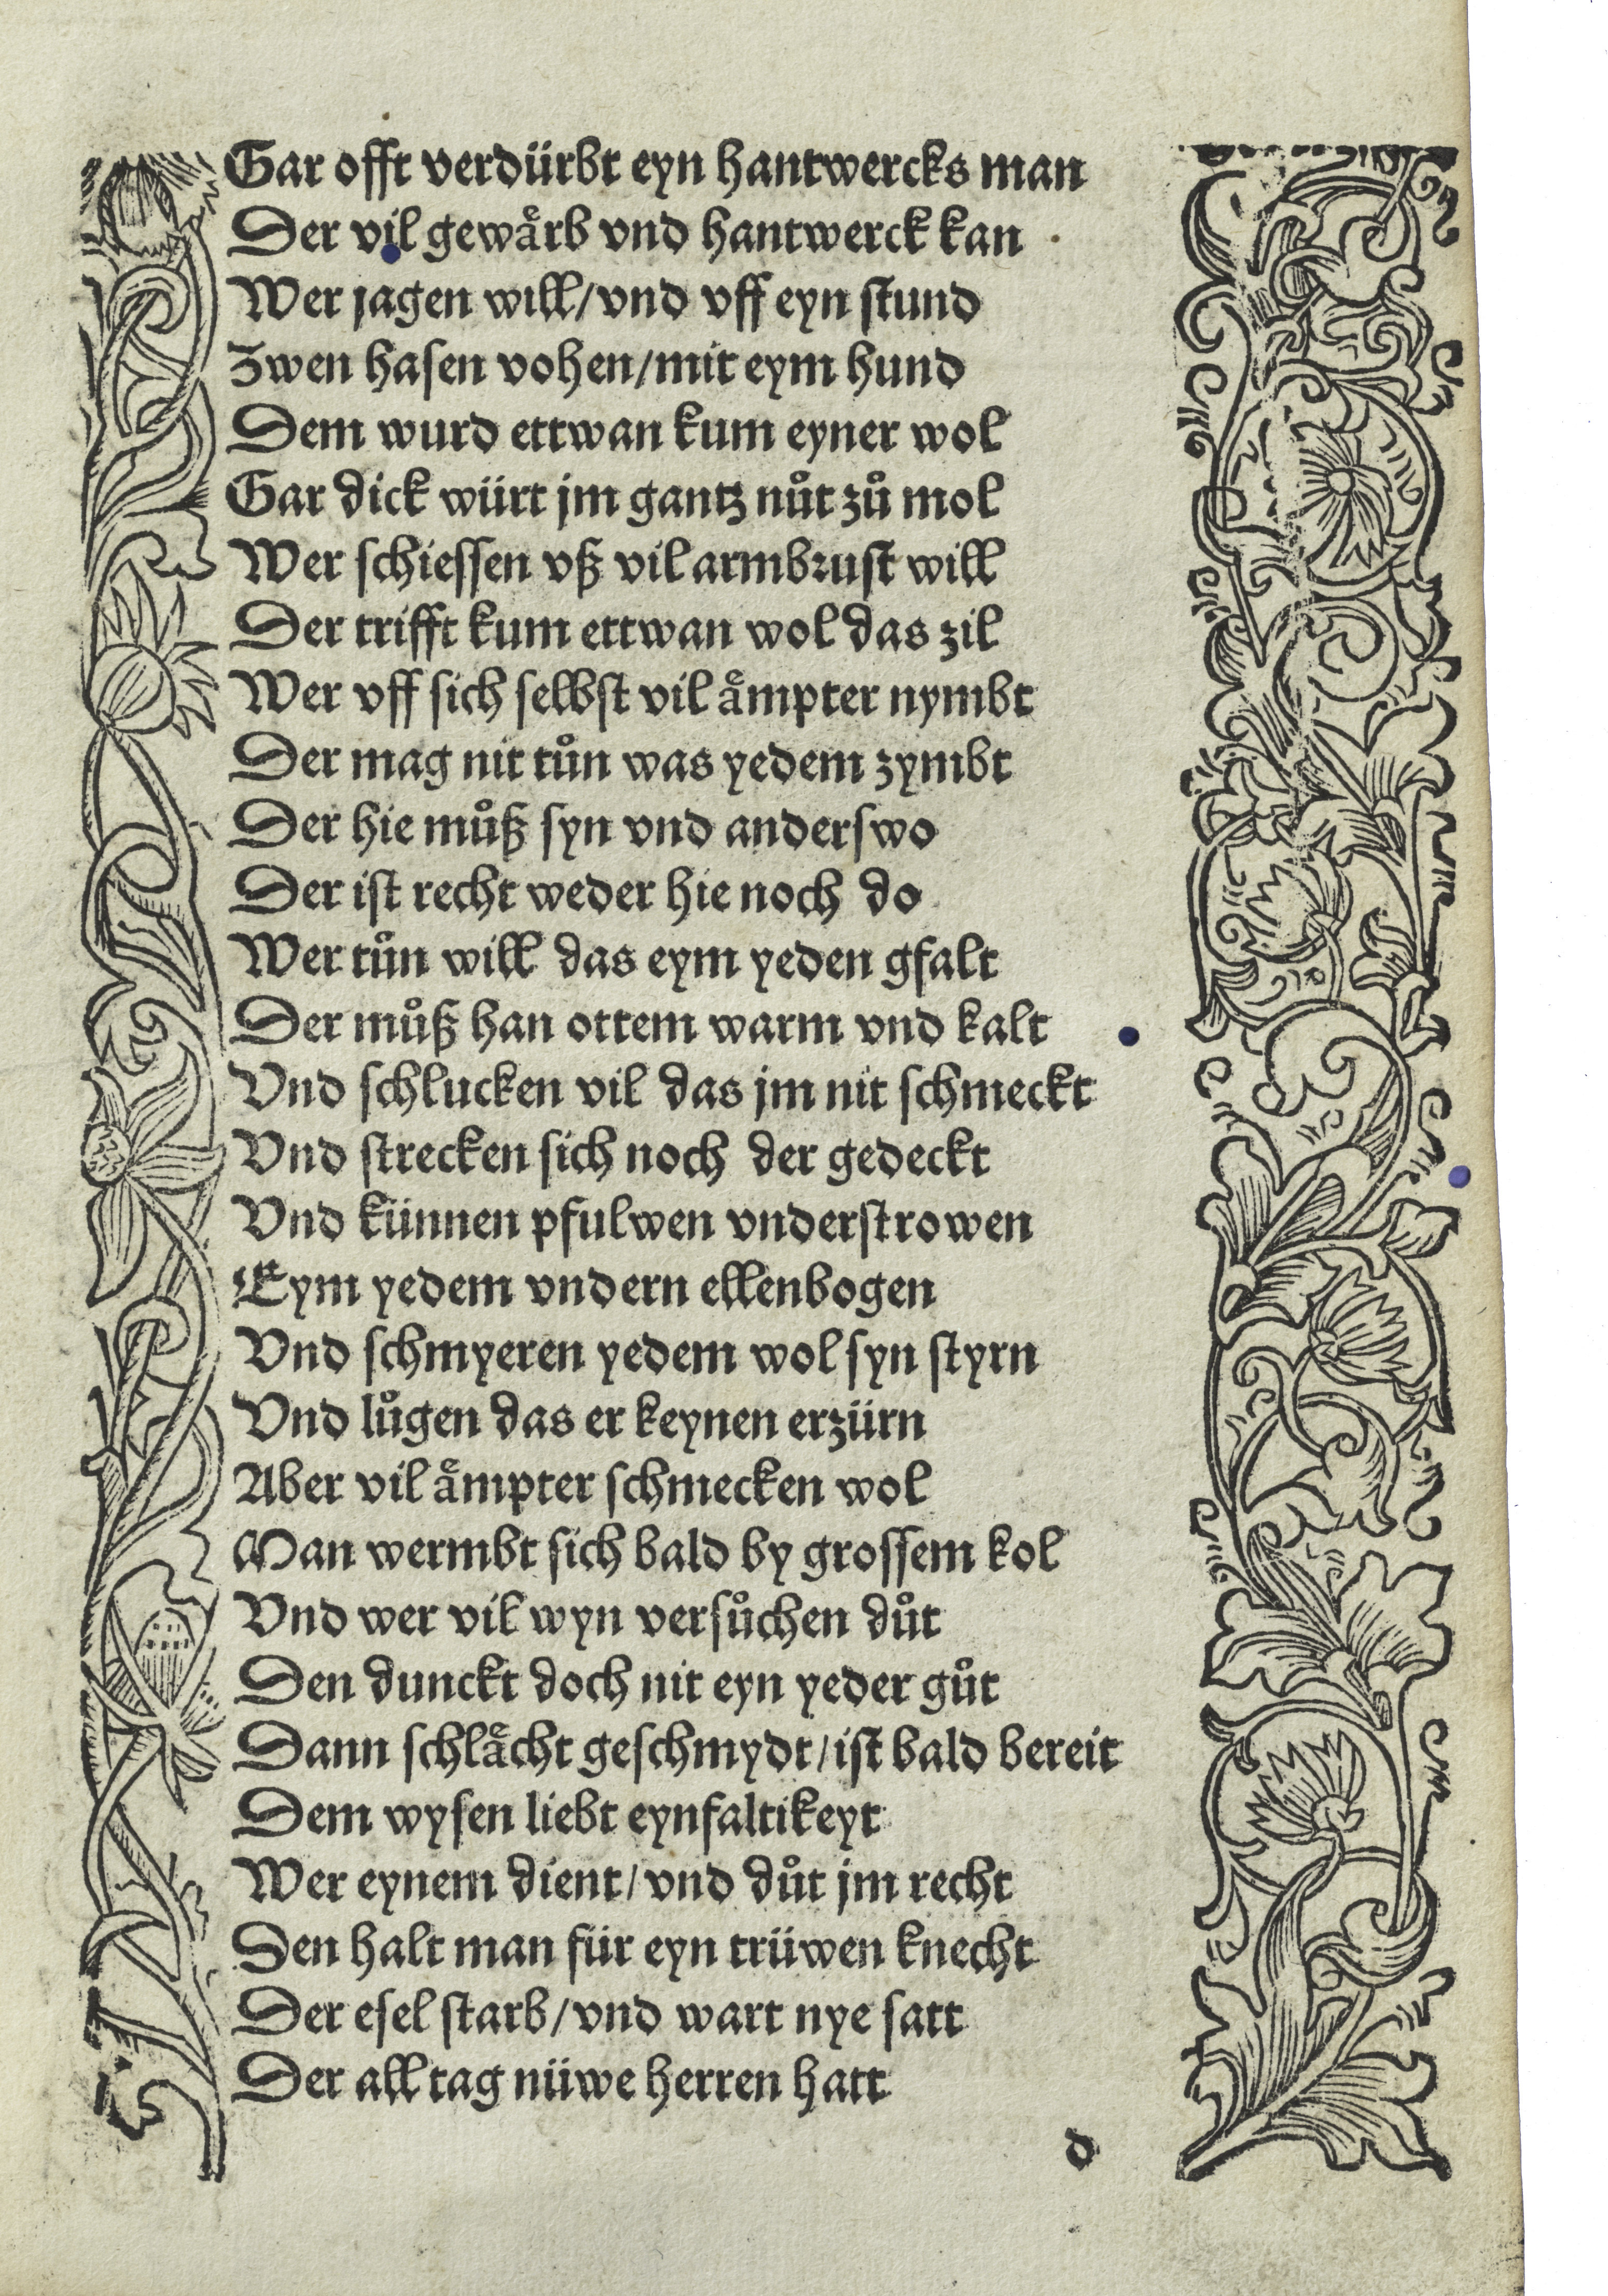 Gar offt verdürbt eyn hantwercks man
Der vil gewaͤrb vnd hantwerck kan
Wer jagen will/vnd vff eyn stund
Zwen hasen vohen/mit eym hund
Dem wurd ettwan kum eyner wol
Gar dick würt jm gantz nuͤt zuͦ mol
Wer schiessen vß vil armbrust will
Der trifft kum ettwan wol das zil
Wer vff sich selbst vil aͤmpter nymbt
Der mag nit tuͦn was yedem zymbt
Der hie muͦß syn vnd anderswo
Der ist recht weder hie noch do
Wer tuͦn will das eym yeden gfalt
Der muͦß han ottem warm vnd kalt
Vnd schlucken vil das jm nit schmeckt
Vnd strecken sich noch der gedeckt
Vnd künnen pfulwen vnderstrowen
Eym yedem vndern ellenbogen
Vnd schmyeren yedem wol syn styrn
Vnd luͦgen das er keynen erzürn
Aber vil aͤmpter schmecken wol
Man wermbt sich bald by grossem kol
Vnd wer vil wyn versuͦchen duͦt
Den dunckt doch nit eyn yeder guͦt
Dann schlaͤcht geschmydt/ist bald bereit
Dem wysen liebt eynfaltikeyt
Wer eynem dient/vnd duͦt jm recht
Den halt man für eyn trüwen knecht
Der esel starb/vnd wart nye satt
Der all tag nüwe herren hatt
d